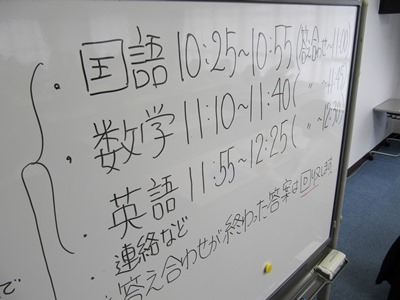 ・国語 10:25~10:55 (答え合わせ~11:00)
・数学 11:10~11:40 ( 〃 ~11:45)
・英語 11:55~12:25 ( 〃 ~12:30)
・連絡など
答え合わせが終わった答案は回収します
で